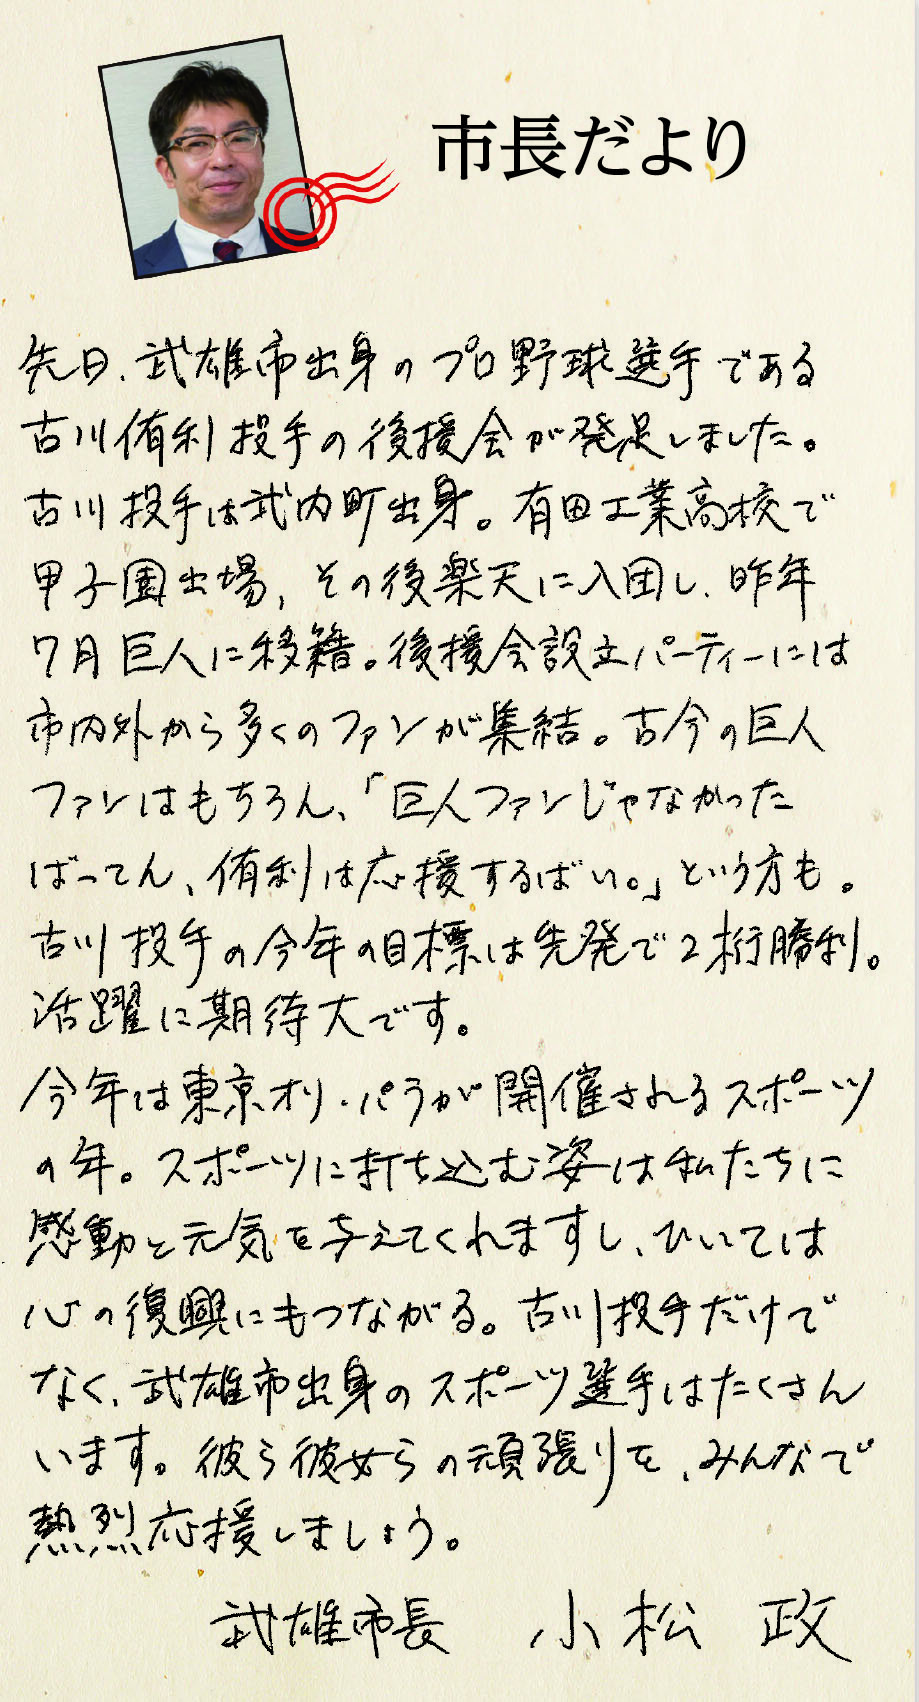 市長だより
先日、武雄市出身のプロ野球選手である
古川侑利投手の後援会が発足しました。
古川投手は武内町出身。有田工業高校で
甲子園出場、その後楽天に入団し、昨年
7月巨人に移籍。後援会設立パーティーには
市内外から多くのファンが集結。古今の巨人
ファンはもちろん、「巨人ファンじゃなかった
ばってん、侑利は応援するばい。」という方も。
古川投手の今年の目標は先発で2桁勝利。
活躍に期待大です。
今年は東京オリ・パラが開催されるスポーツ
の年。スポーツに打ち込む姿は私たちに
感動と元気を与えてくれますし、ひいては
心の復興にもつながる。古川投手だけで
なく、武雄市出身のスポーツ選手はたくさん
います。彼ら彼女らの頑張りを、みんなで
熱烈応援しましょう。
武雄市長 小松 政